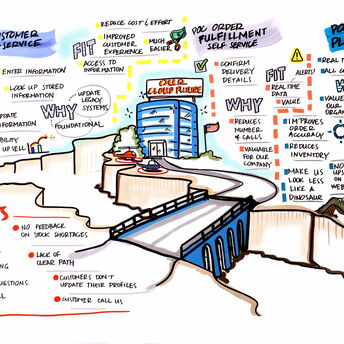 CUSTOMER
-SERVICE
REDUCE COST & EFFORT
FIT
IMPROVED
CUSTOMER
EXPERIENCE
MUCH
EASIER
ACCESS TO
INFORMATION
ENTER INFORMATION
LOOK UP STORED
INFORMATION
UPDATE
LEGACY
SYSTEMS
WHY
FOUNDATIONAL
UPDATE
UP SELL
OUR
CLOUD FUTURE
POC ORDER
FULFILLMENT
SELF-SERVICE
CONFIRM
DELIVERY
DETAILS
FIT
ALERTS!
REAL TIME
DATA
VALUE
WHY
REDUCES
NUMBER
4 CALLS
VALUABLE
FOR OUR
COMPANY
IMPROVES
ORDER
ACCURACY
REDUCES
INVENTORY
MAKE US
LOOK LESS
LIKE A
DINOSAUR
REAL
ALL
NO
ON
NO FEEDBACK
ON STOCK SHORTAGES
LACK OF
CLEAR PATH
CUSTOMERS DON'T
UPDATE THEIR PROFILES
CUSTOMER CALL US